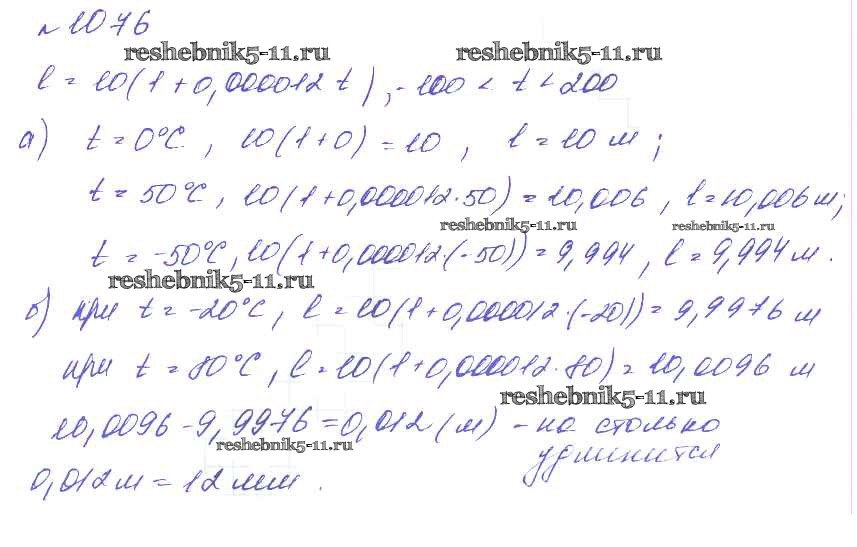 № 1076
reshebnik5-11.ru reshebnik5-11.ru
l = 10(1+0,000012 t), -100 < t < 200
а) t = 0°C, 10(1+0) = 10, l = 10 м;
t = 50°C, 10(1+0,000012·50) = 10,006, l = 10,006 м;
reshebnik5-11.ru reshebnik5-11.ru
t = -50°C, 10(1+0,000012·(-50)) = 9,994, l = 9,994 м.
reshebnik5-11.ru
б) при t = -20°C, l = 10(1+0,000012·(-20)) = 9,9976 м
при t = 80°C, l = 10(1+0,000012·80) = 10,0096 м
reshebnik5-11.ru
10,0096 - 9,9976 = 0,012 (м) - на столько
reshebnik5-11.ru
удлинится
0,012 м = 12 мм.